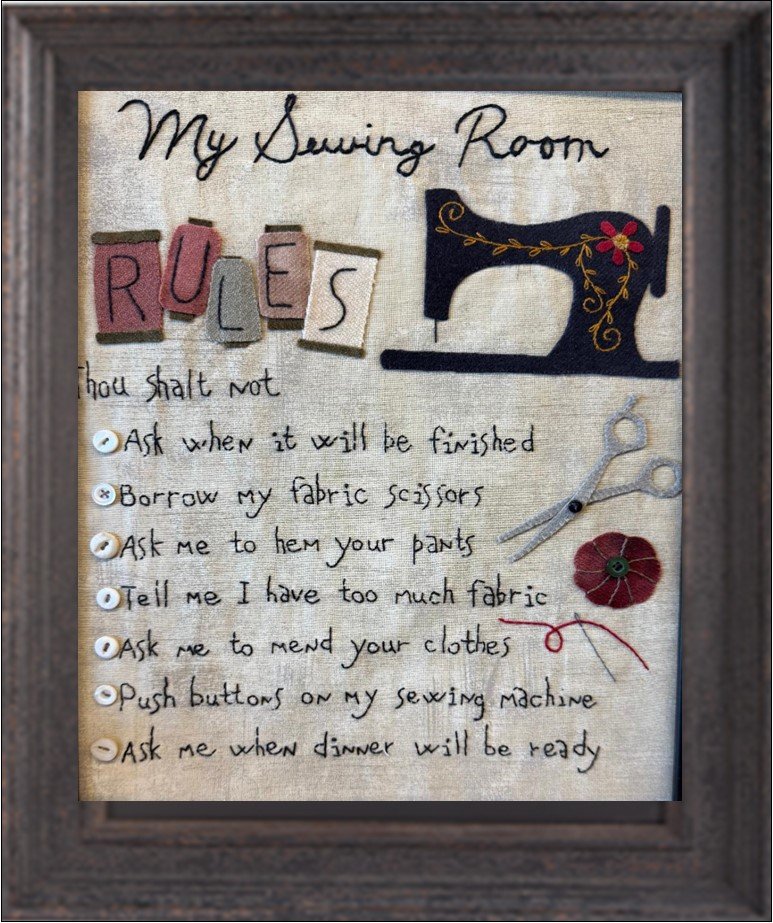 My Sewing Room
RULES
Thou shalt not
Ask when it will be finished
Borrow my fabric scissors
Ask me to hem your pants
Tell me I have too much fabric
Ask me to mend your clothes
Push buttons on my sewing machine
Ask me when dinner will be ready